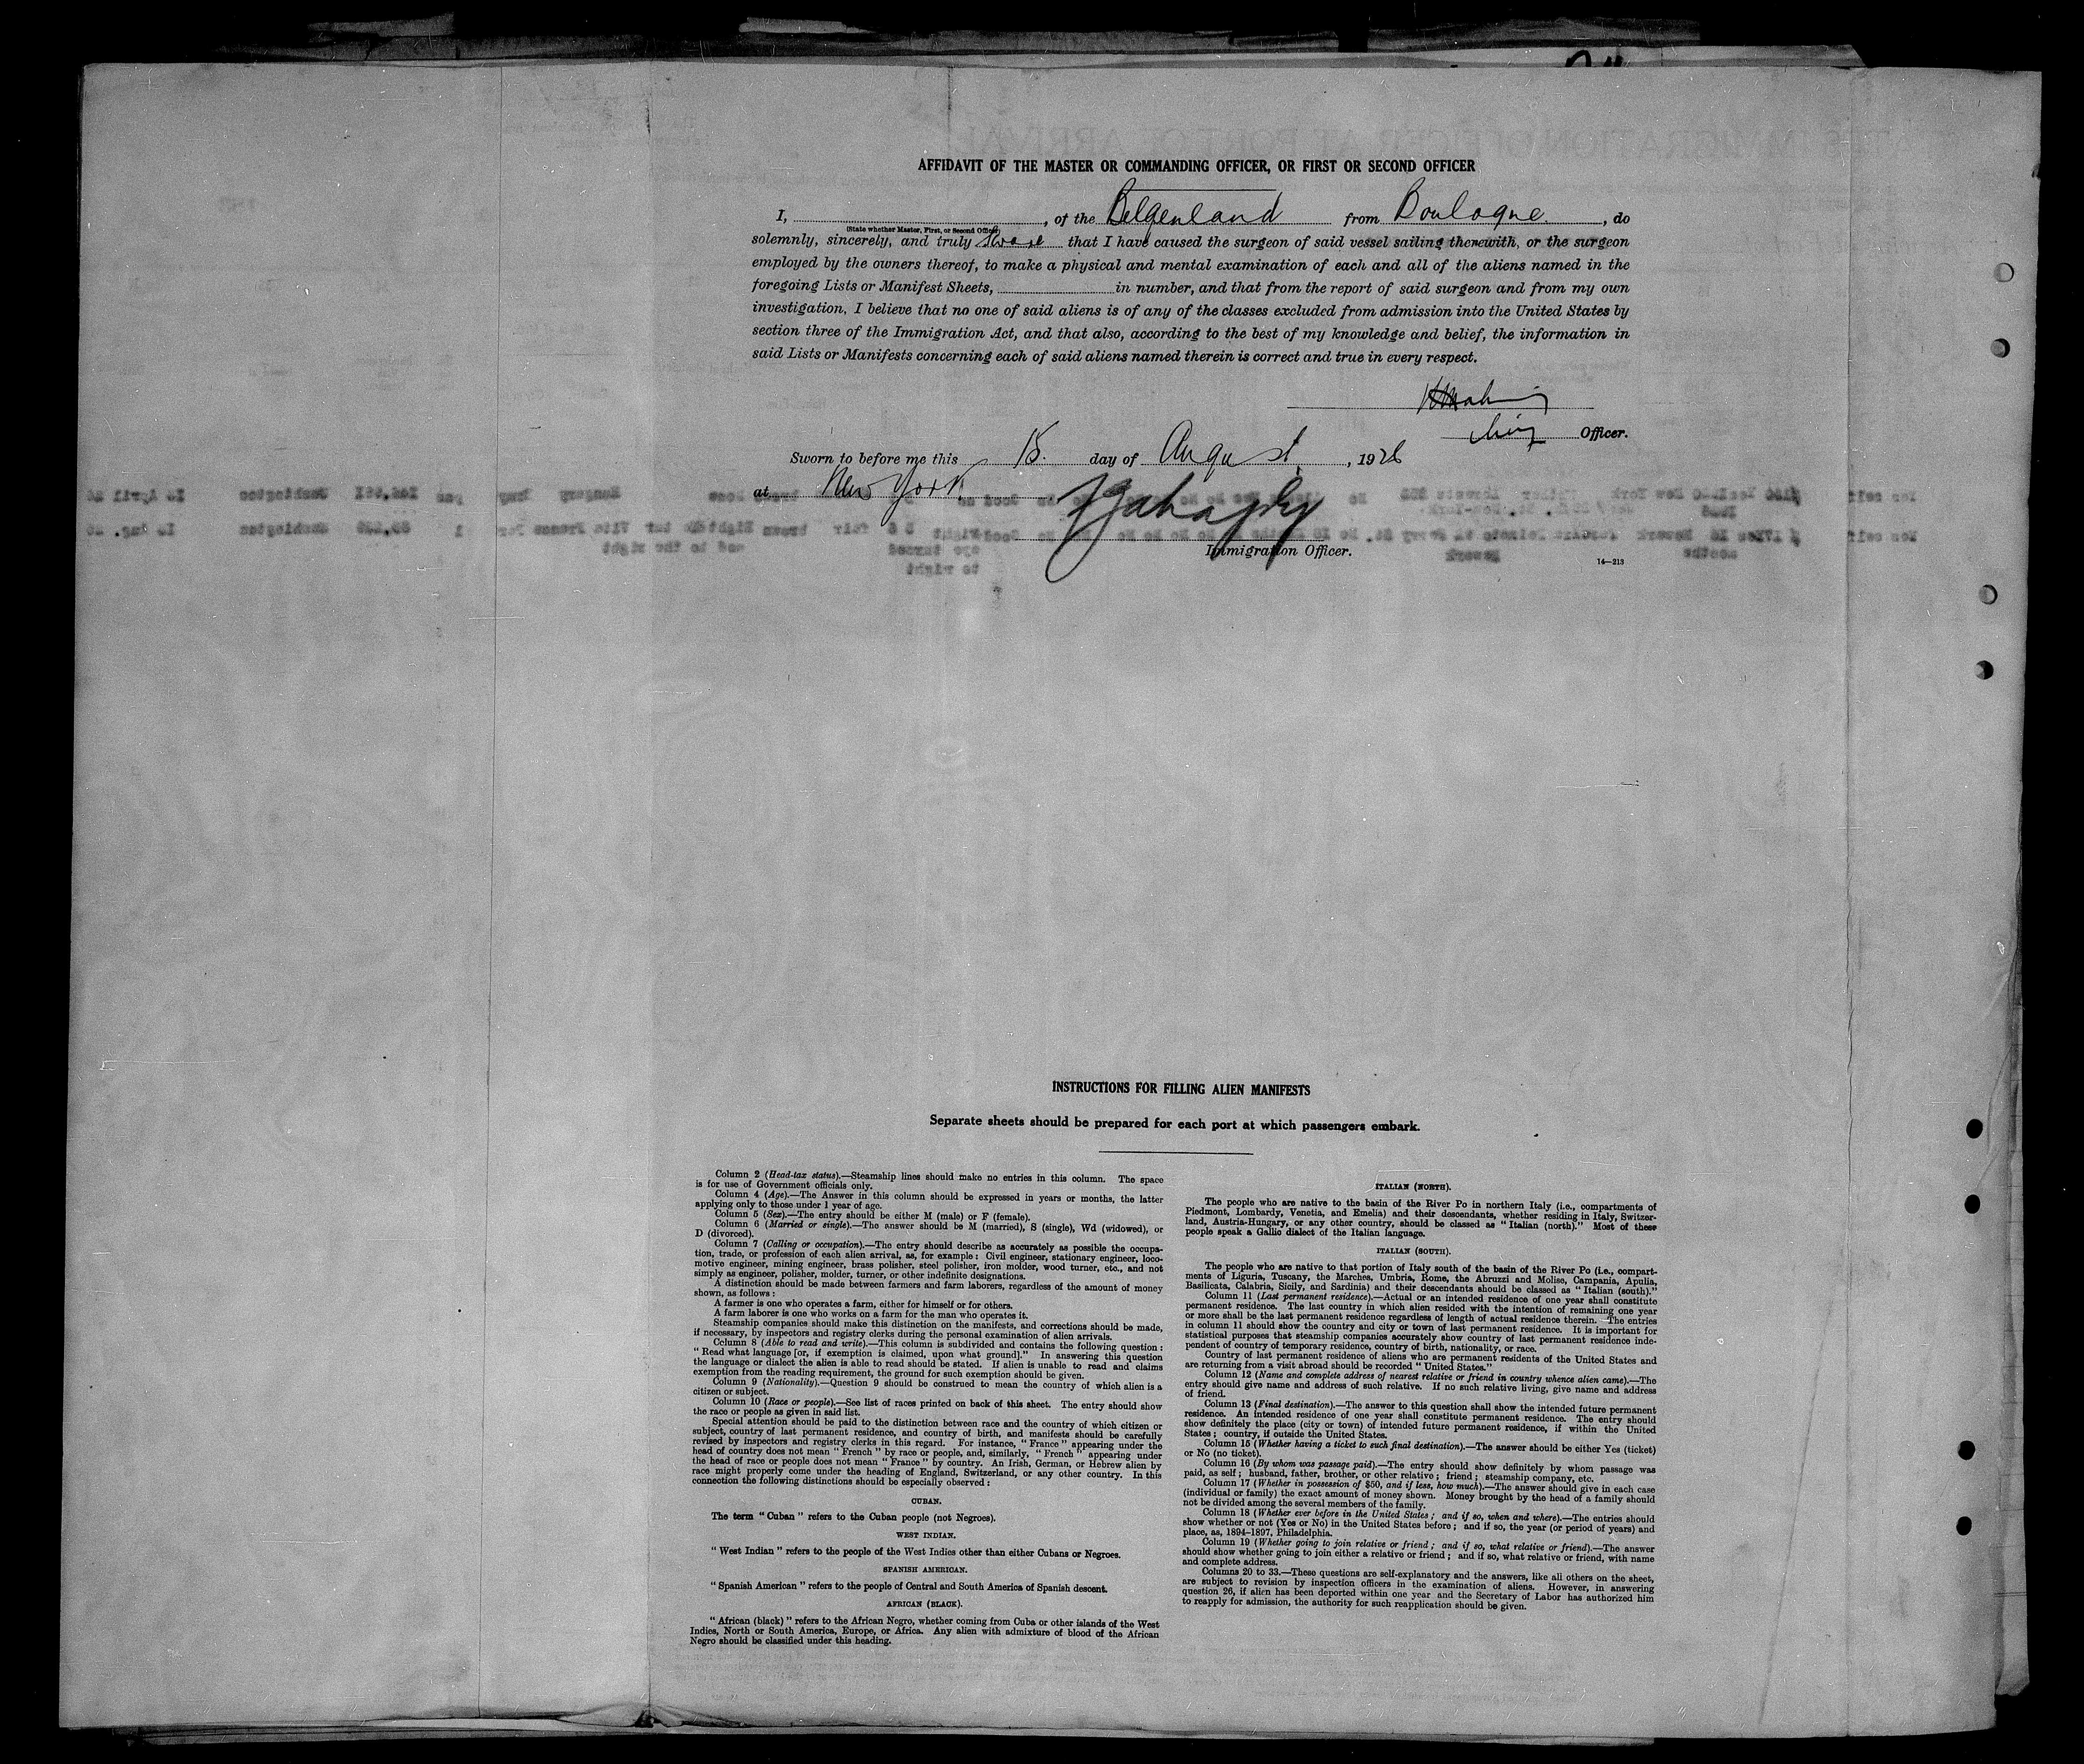 AFFIDAVIT OF THE MASTER OR COMMANDING OFFICER, OR FIRST OR SECOND OFFICER
I, , of the Belgenland from Boulogne , do
(State whether Master, First, or Second Officer)
solemnly, sincerely, and truly swear that I have caused the surgeon of said vessel sailing therewith, or the surgeon
employed by the owners thereof, to make a physical and mental examination of each and all of the aliens named in the
foregoing Lists or Manifest Sheets, in number, and that from the report of said surgeon and from my own
investigation, I believe that no one of said aliens is of any of the classes excluded from admission into the United States by
section three of the Immigration Act, and that also, according to the best of my knowledge and belief, the information in
said Lists or Manifests concerning each of said aliens named therein is correct and true in every respect.
Officer.
Sworn to before me this 15. day of August , 1926
at New York
Immigration Officer.
14—213
INSTRUCTIONS FOR FILLING ALIEN MANIFESTS
Separate sheets should be prepared for each port at which passengers embark.
Column 2 (Head-tax status).—Steamship lines should make no entries in this column. The space
is for use of Government officials only.
Column 4 (Age).—The Answer in this column should be expressed in years or months, the latter
applying only to those under 1 year of age.
Column 5 (Sex).—The entry should be either M (male) or F (female).
Column 6 (Married or single).—The answer should be M (married), S (single), Wd (widowed), or
D (divorced).
Column 7 (Calling or occupation).—The entry should describe as accurately as possible the occupa-
tion, trade, or profession of each alien arrival, as, for example: Civil engineer, stationary engineer, loco-
motive engineer, mining engineer, brass polisher, steel polisher, iron molder, wood turner, etc., and not
simply as engineer, polisher, molder, turner, or other indefinite designations.
A distinction should be made between farmers and farm laborers, regardless of the amount of money
shown, as follows:
A farmer is one who operates a farm, either for himself or for others.
A farm laborer is one who works on a farm for the man who operates it.
Steamship companies should make this distinction on the manifests, and corrections should be made,
if necessary, by inspectors and registry clerks during the personal examination of alien arrivals.
Column 8 (Able to read and write).—This column is subdivided and contains the following question:
"Read what language [or, if exemption is claimed, upon what ground]." In answering this question
the language or dialect the alien is able to read should be stated. If alien is unable to read and claims
exemption from the reading requirement, the ground for such exemption should be given.
Column 9 (Nationality).—Question 9 should be construed to mean the country of which alien is a
citizen or subject.
Column 10 (Race or people).—See list of races printed on back of this sheet. The entry should show
the race or people as given in said list.
Special attention should be paid to the distinction between race and the country of which citizen or
subject, country of last permanent residence, and country of birth, and manifests should be carefully
revised by inspectors and registry clerks in this regard. For instance, "France" appearing under the
head of country does not mean "French" by race or people, and, similarly, "French" appearing under
the head of race or people does not mean "France" by country. An Irish, German, or Hebrew alien by
race might properly come under the heading of England, Switzerland, or any other country. In this
connection the following distinctions should be especially observed:
CUBAN.
The term "Cuban" refers to the Cuban people (not Negroes).
WEST INDIAN.
"West Indian" refers to the people of the West Indies other than either Cubans or Negroes.
SPANISH AMERICAN.
"Spanish American" refers to the people of Central and South America of Spanish descent.
AFRICAN (BLACK).
"African (black)" refers to the African Negro, whether coming from Cuba or other islands of the West
Indies, North or South America, Europe, or Africa. Any alien with admixture of blood of the African
Negro should be classified under this heading.
ITALIAN (NORTH).
The people who are native to the basin of the River Po in northern Italy (i.e., compartments of
Piedmont, Lombardy, Venetia, and Emelia) and their descendants, whether residing in Italy, Switzer-
land, Austria-Hungary, or any other country, should be classed as "Italian (north)." Most of these
people speak a Gallic dialect of the Italian language.
ITALIAN (SOUTH).
The people who are native to that portion of Italy south of the basin of the River Po (i.e., compart-
ments of Liguria, Tuscany, the Marches, Umbria, Rome, the Abruzzi and Molise, Campania, Apulia,
Basilicata, Calabria, Sicily, and Sardinia) and their descendants should be classed as "Italian (south)."
Column 11 (Last permanent residence).—Actual or an intended residence of one year shall constitute
permanent residence. The last country in which alien resided with the intention of remaining one year
or more shall be the last permanent residence regardless of length of actual residence therein. The entries
in column 11 should show the country and city or town of last permanent residence. It is important for
statistical purposes that steamship companies accurately show country of last permanent residence inde-
pendent of country of temporary residence, country of birth, nationality, or race.
Country of last permanent residence of aliens who are permanent residents of the United States and
are returning from a visit abroad should be recorded "United States."
Column 12 (Name and complete address of nearest relative or friend in country whence alien came).—The
entry should give name and address of such relative. If no such relative living, give name and address
of friend.
Column 13 (Final destination).—The answer to this question shall show the intended future permanent
residence. An intended residence of one year shall constitute permanent residence. The entry should
show definitely the place (city or town) of intended future permanent residence, if within the United
States; country, if outside the United States.
Column 15 (Whether having a ticket to such final destination).—The answer should be either Yes (ticket)
or No (no ticket).
Column 16 (By whom was passage paid).—The entry should show definitely by whom passage was
paid, as self; husband, father, brother, or other relative; friend; steamship company, etc.
Column 17 (Whether in possession of $50, and if less, how much).—The answer should give in each case
(individual or family) the exact amount of money shown. Money brought by the head of a family should
not be divided among the several members of the family.
Column 18 (Whether ever before in the United States; and if so, when and where).—The entries should
show whether or not (Yes or No) in the United States before; and if so, the year (or period of years) and
place, as, 1894-1897, Philadelphia.
Column 19 (Whether going to join relative or friend; and if so, what relative or friend).—The answer
should show whether going to join either a relative or friend; and if so, what relative or friend, with name
and complete address.
Columns 20 to 33.—These questions are self-explanatory and the answers, like all others on the sheet,
are subject to revision by inspection officers in the examination of aliens. However, in answering
question 26, if alien has been deported within one year and the Secretary of Labor has authorized him
to reapply for admission, the authority for such reapplication should be given.